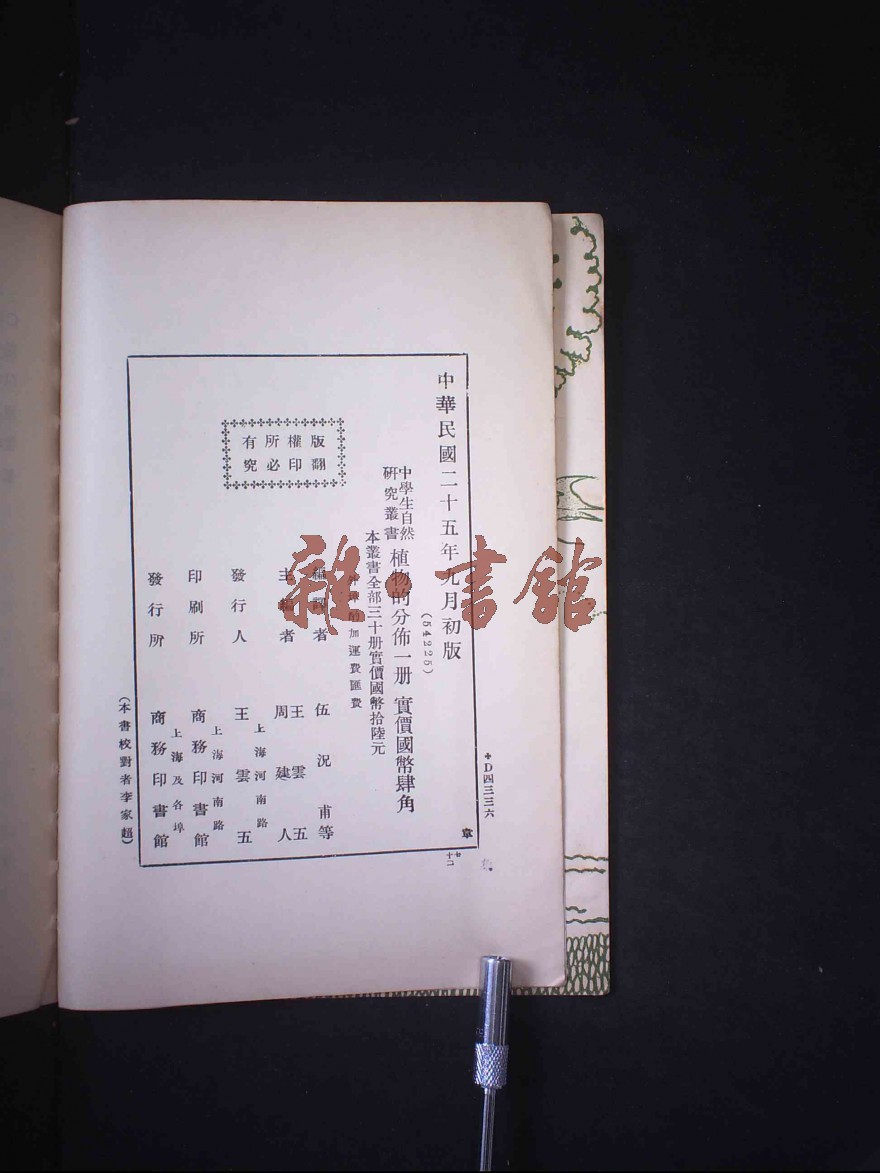 中華民國二十五年九月初版
(54225)
中學生自然
研究叢書
植物的分佈一册 實價國幣肆角
本叢書全部三十册實價國幣拾陸元
外埠酌加運費匯費
版權所有
翻印必究
編譯者 伍況甫等
主編者 王雲五
周建人
發行人 王雲五
上海河南路
印刷所 商務印書館
上海河南路
發行所 商務印書館
上海及各埠
(本書校對者李家超)
D四三三六
章
雜·書館